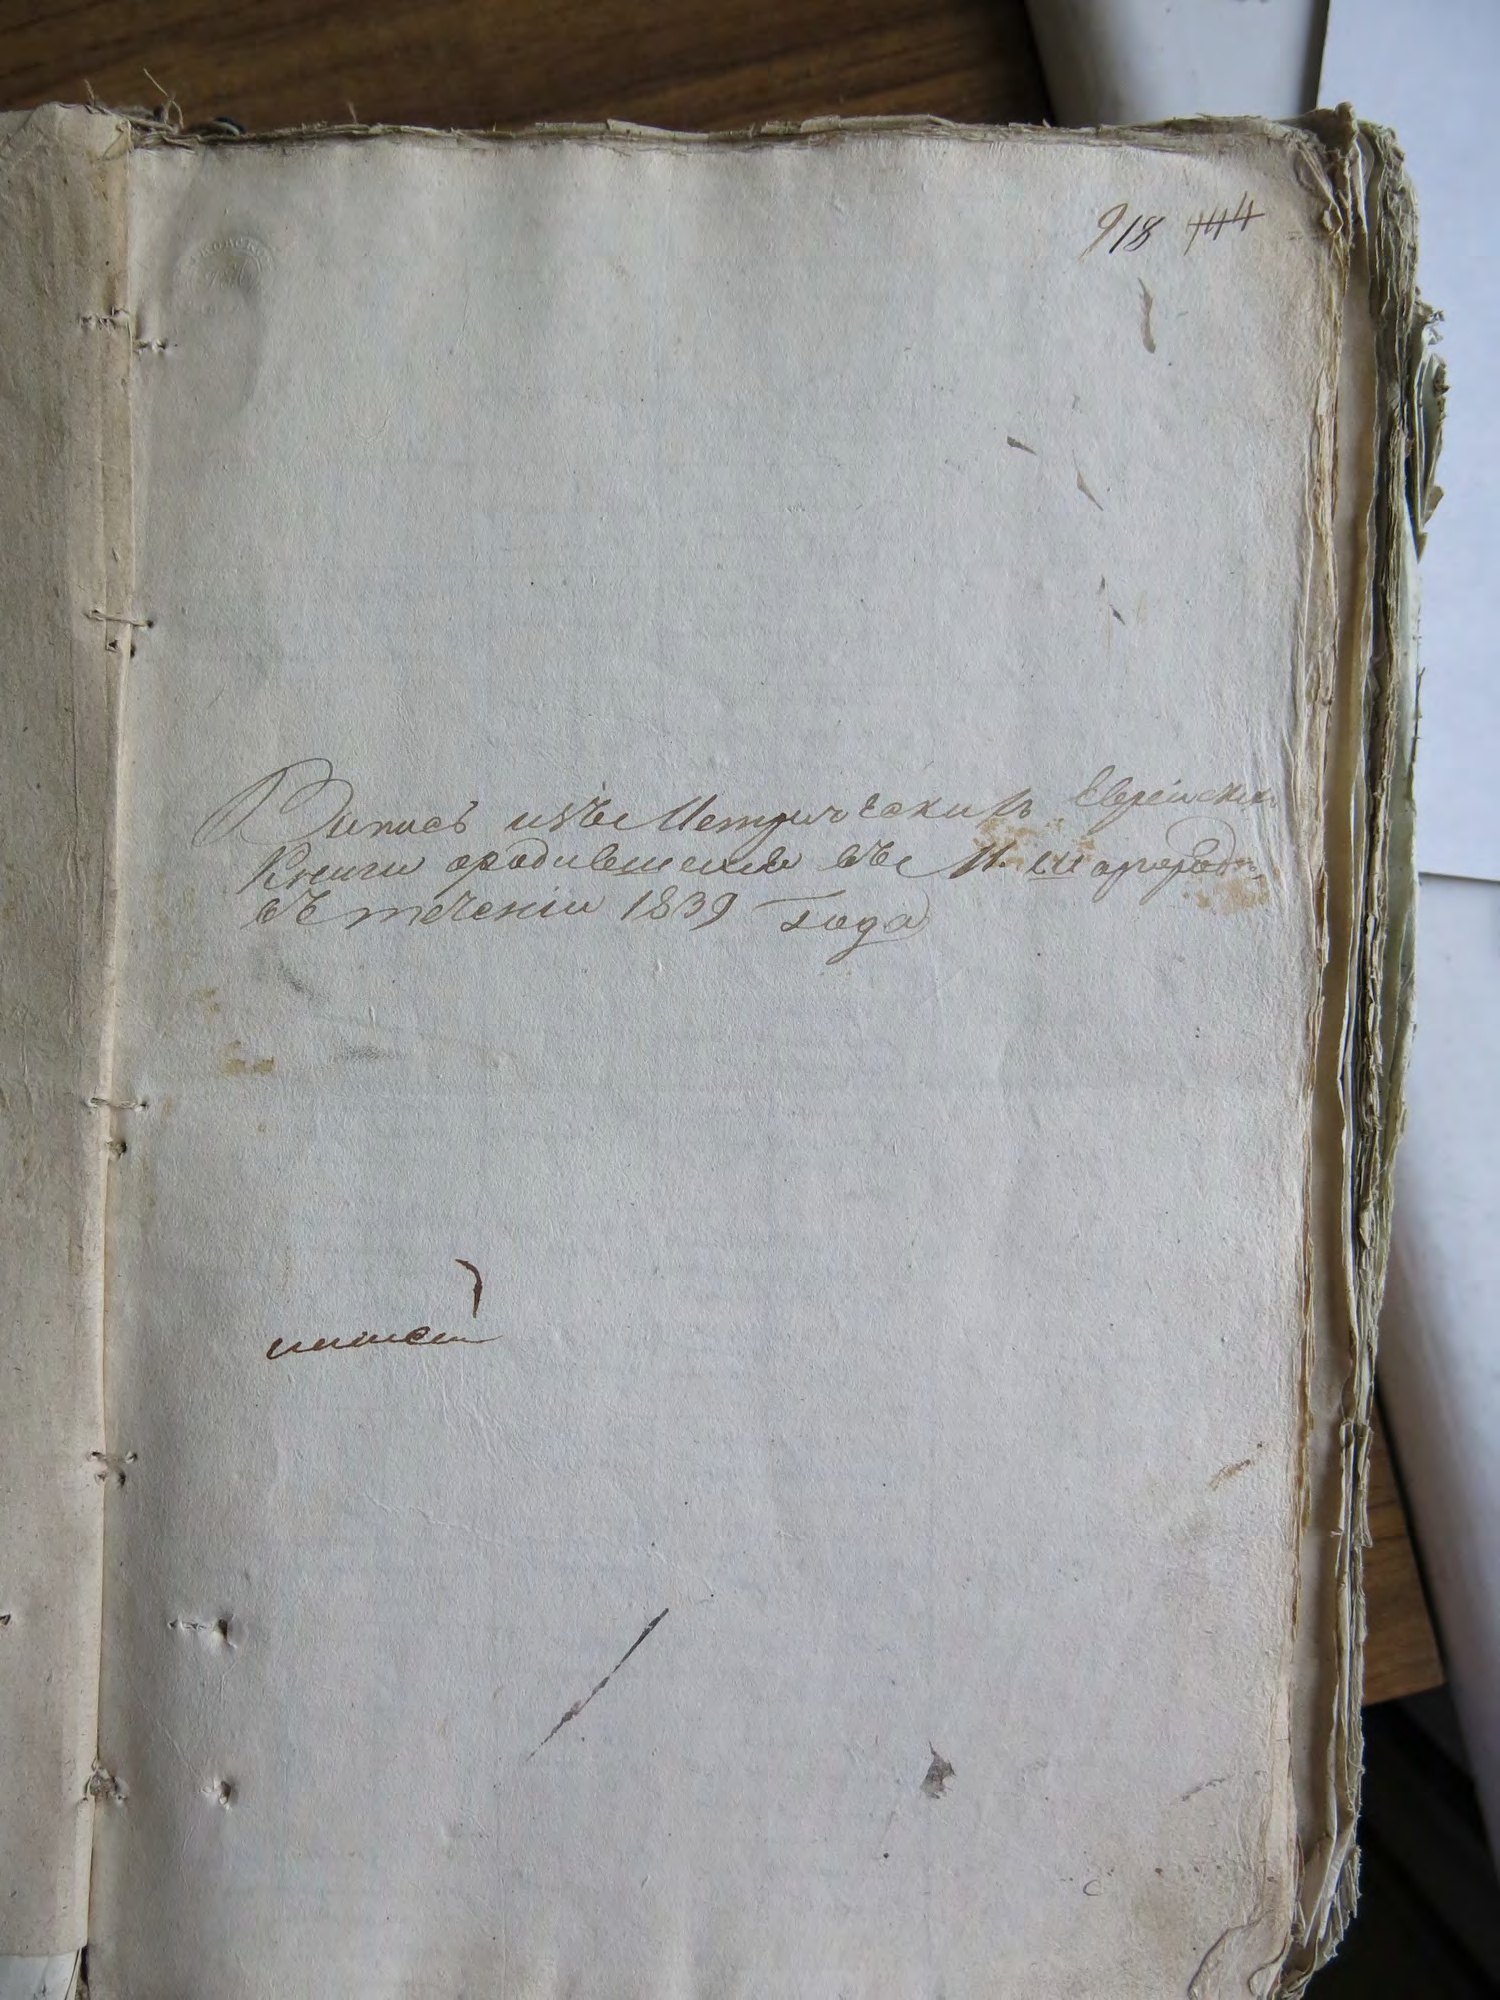 918 744
Выпись изъ Метрическихъ Еврейских
Книги ородившихся въ М. Шаргороде
въ течении 1839 Года